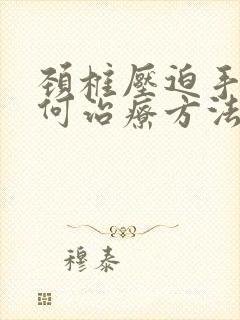 頚椎壓迫手
何治療方法
穆泰